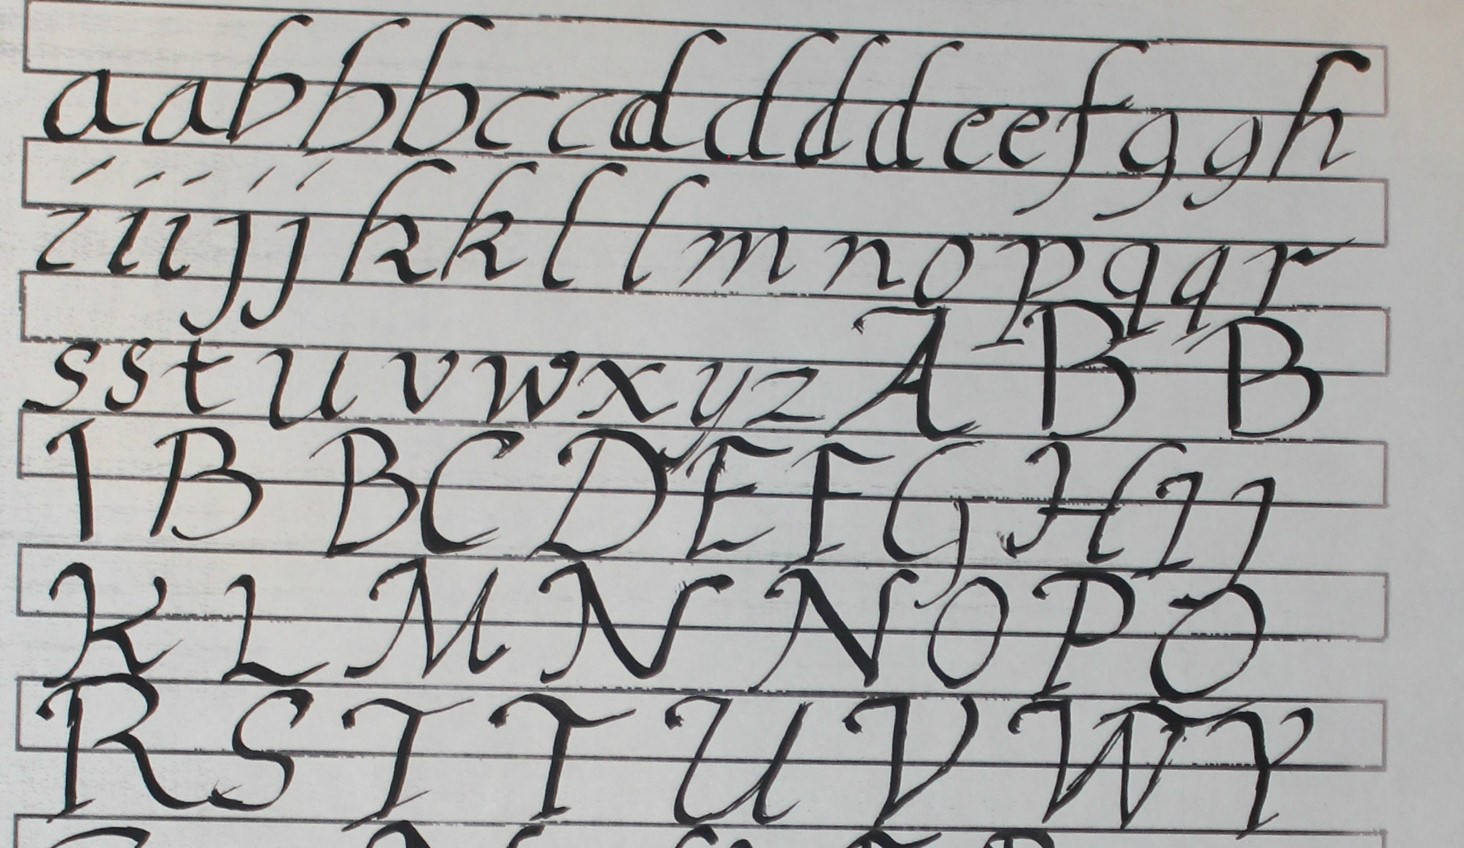 a a b b b c c d d d d e e f g g h
i i i j j k k l l m n o p q q r
s s t u v w x y z A B B
I B B C D E F G H I J
K L M N N O P Q
R S T T U V W Y